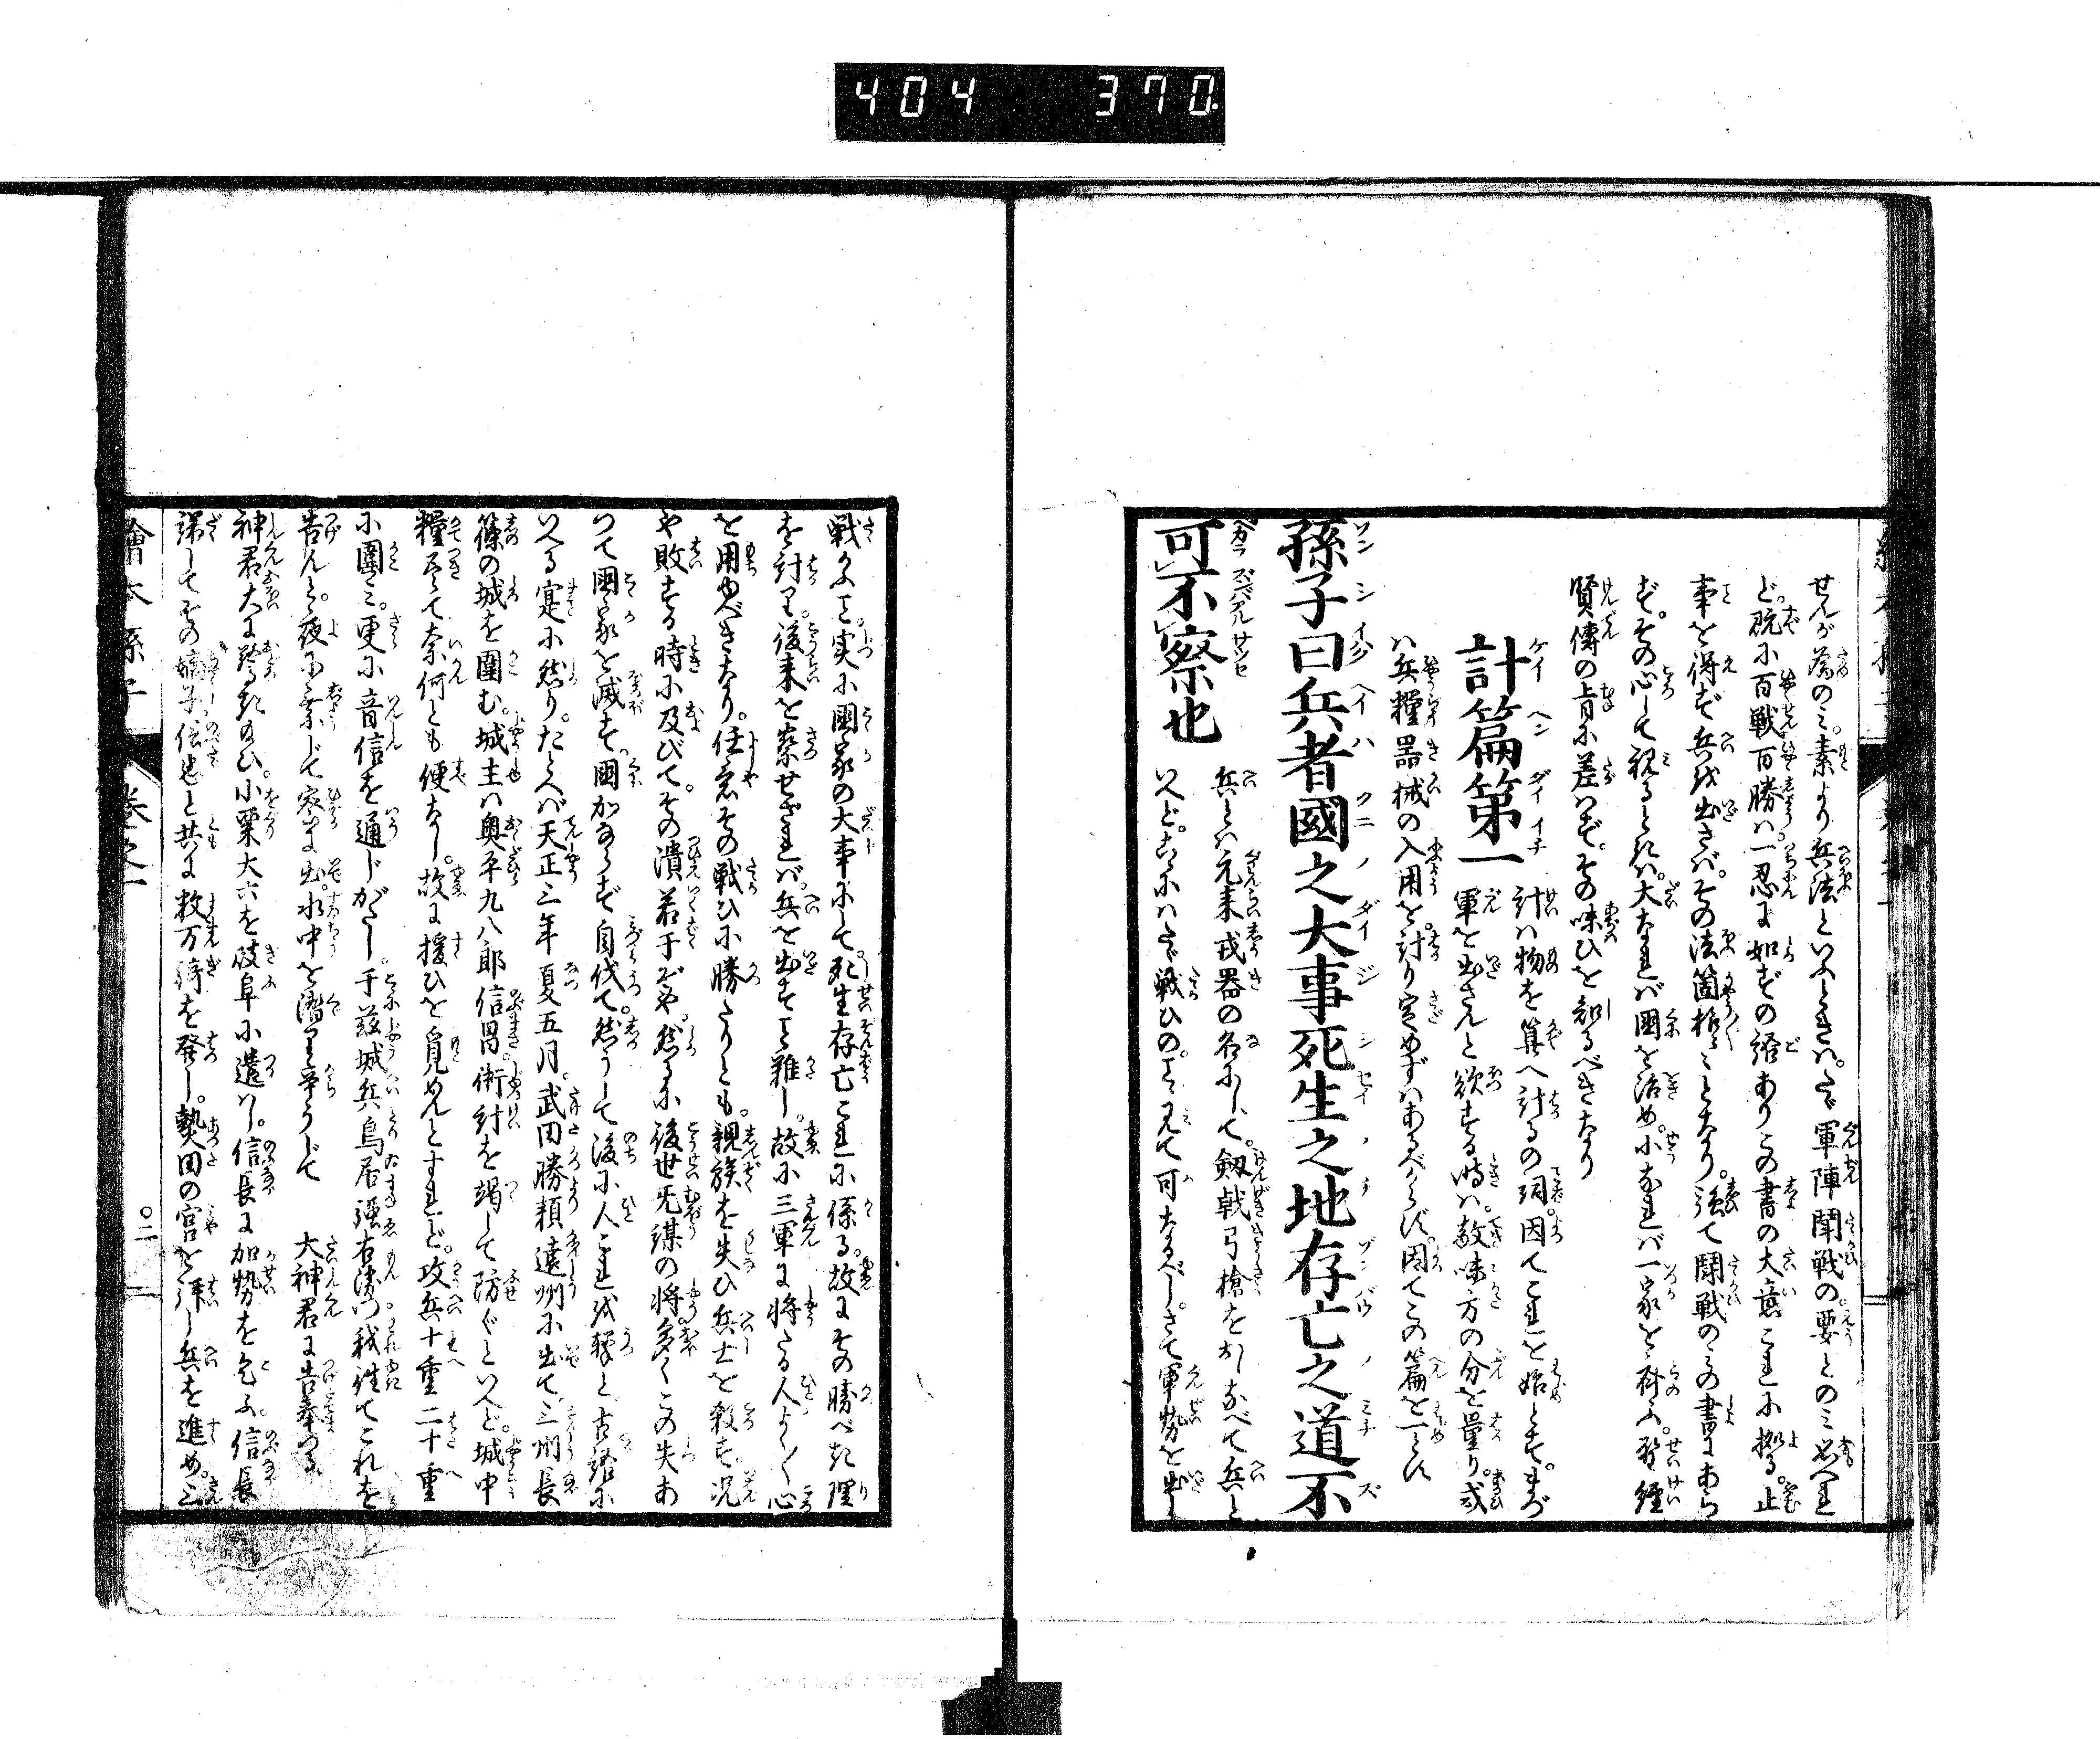 404 370.
せんが為のミ。素より兵法といふときハ。たゞ軍陣闘戦の。要とのミ思へ𪜈
ど。既に百戦百勝ハ一忍に如ずの語ありこの書の大意これに拠る。止
事を得ず兵を出さバ。その法箇様〻〻となり。強て闘戦のミの書にあら
ず。その心して視るときハ。大なれバ國を治め。小なれバ一家を斉ふ。聖經
賢傳の旨に差ハず。その味ひを知るべきなり
計篇第一
計ハ物を算へ計るの詞。因てこれを始とす。まづ
軍を出さんと欲する時ハ。敵味方の分を量り。或
ハ兵糧器械の入用を。計り定めずハあるべからず。因てこの篇を一とす
孫子曰兵者國之大事死生之地存亡之道不
可不察也
兵とハ元来戎器の名にして。劔戟弓槍をおしなべて兵と
いへど。こゝにハたゞ戦ひの。ことと見て可なるべし。さて軍勢を出し
戦ふこと。実に國家の大事にして。死生存亡これに係る。故にその勝べき理
を計り。後来を察せざれバ。兵を出すこと難し。故に三軍に将たる人よく〳〵心
を用ゆべきなり。任意その戦ひに勝たりとも。親族を失ひ兵士を殺す。况
や敗する時に及びて。その潰若干ぞや。然るに後世無謀の将。多くこの失あ
つて國家を滅す。國かならず自伐て。然うして後に人これを撃と。古語に
いへる寔に然り。たとへバ天正三年夏五月。武田勝頼遠州に出て。三州長
篠の城を圍む。城主ハ奥平九八郎信昌。術計を竭して防ぐといへど。城中
糧尽て奈何とも便なし。故に援ひを覓めんとすれど。攻兵十重二十重
に圍ミ。更に音信を通じがたし。于茲城兵鳥居強右衛門。我往てこれを
告んと。夜に乗じて密に出。水中を潜り辛うじて 大神君に告奉つる。
神君大に驚き給ひ。小栗大六を岐阜に遣ハし。信長に加勢を乞ふ。信長
諾してその嫡子信忠と共に数万騎を発し。熱田の宮を拝し兵を進め。三
繪本孫子 巻之一
〇二